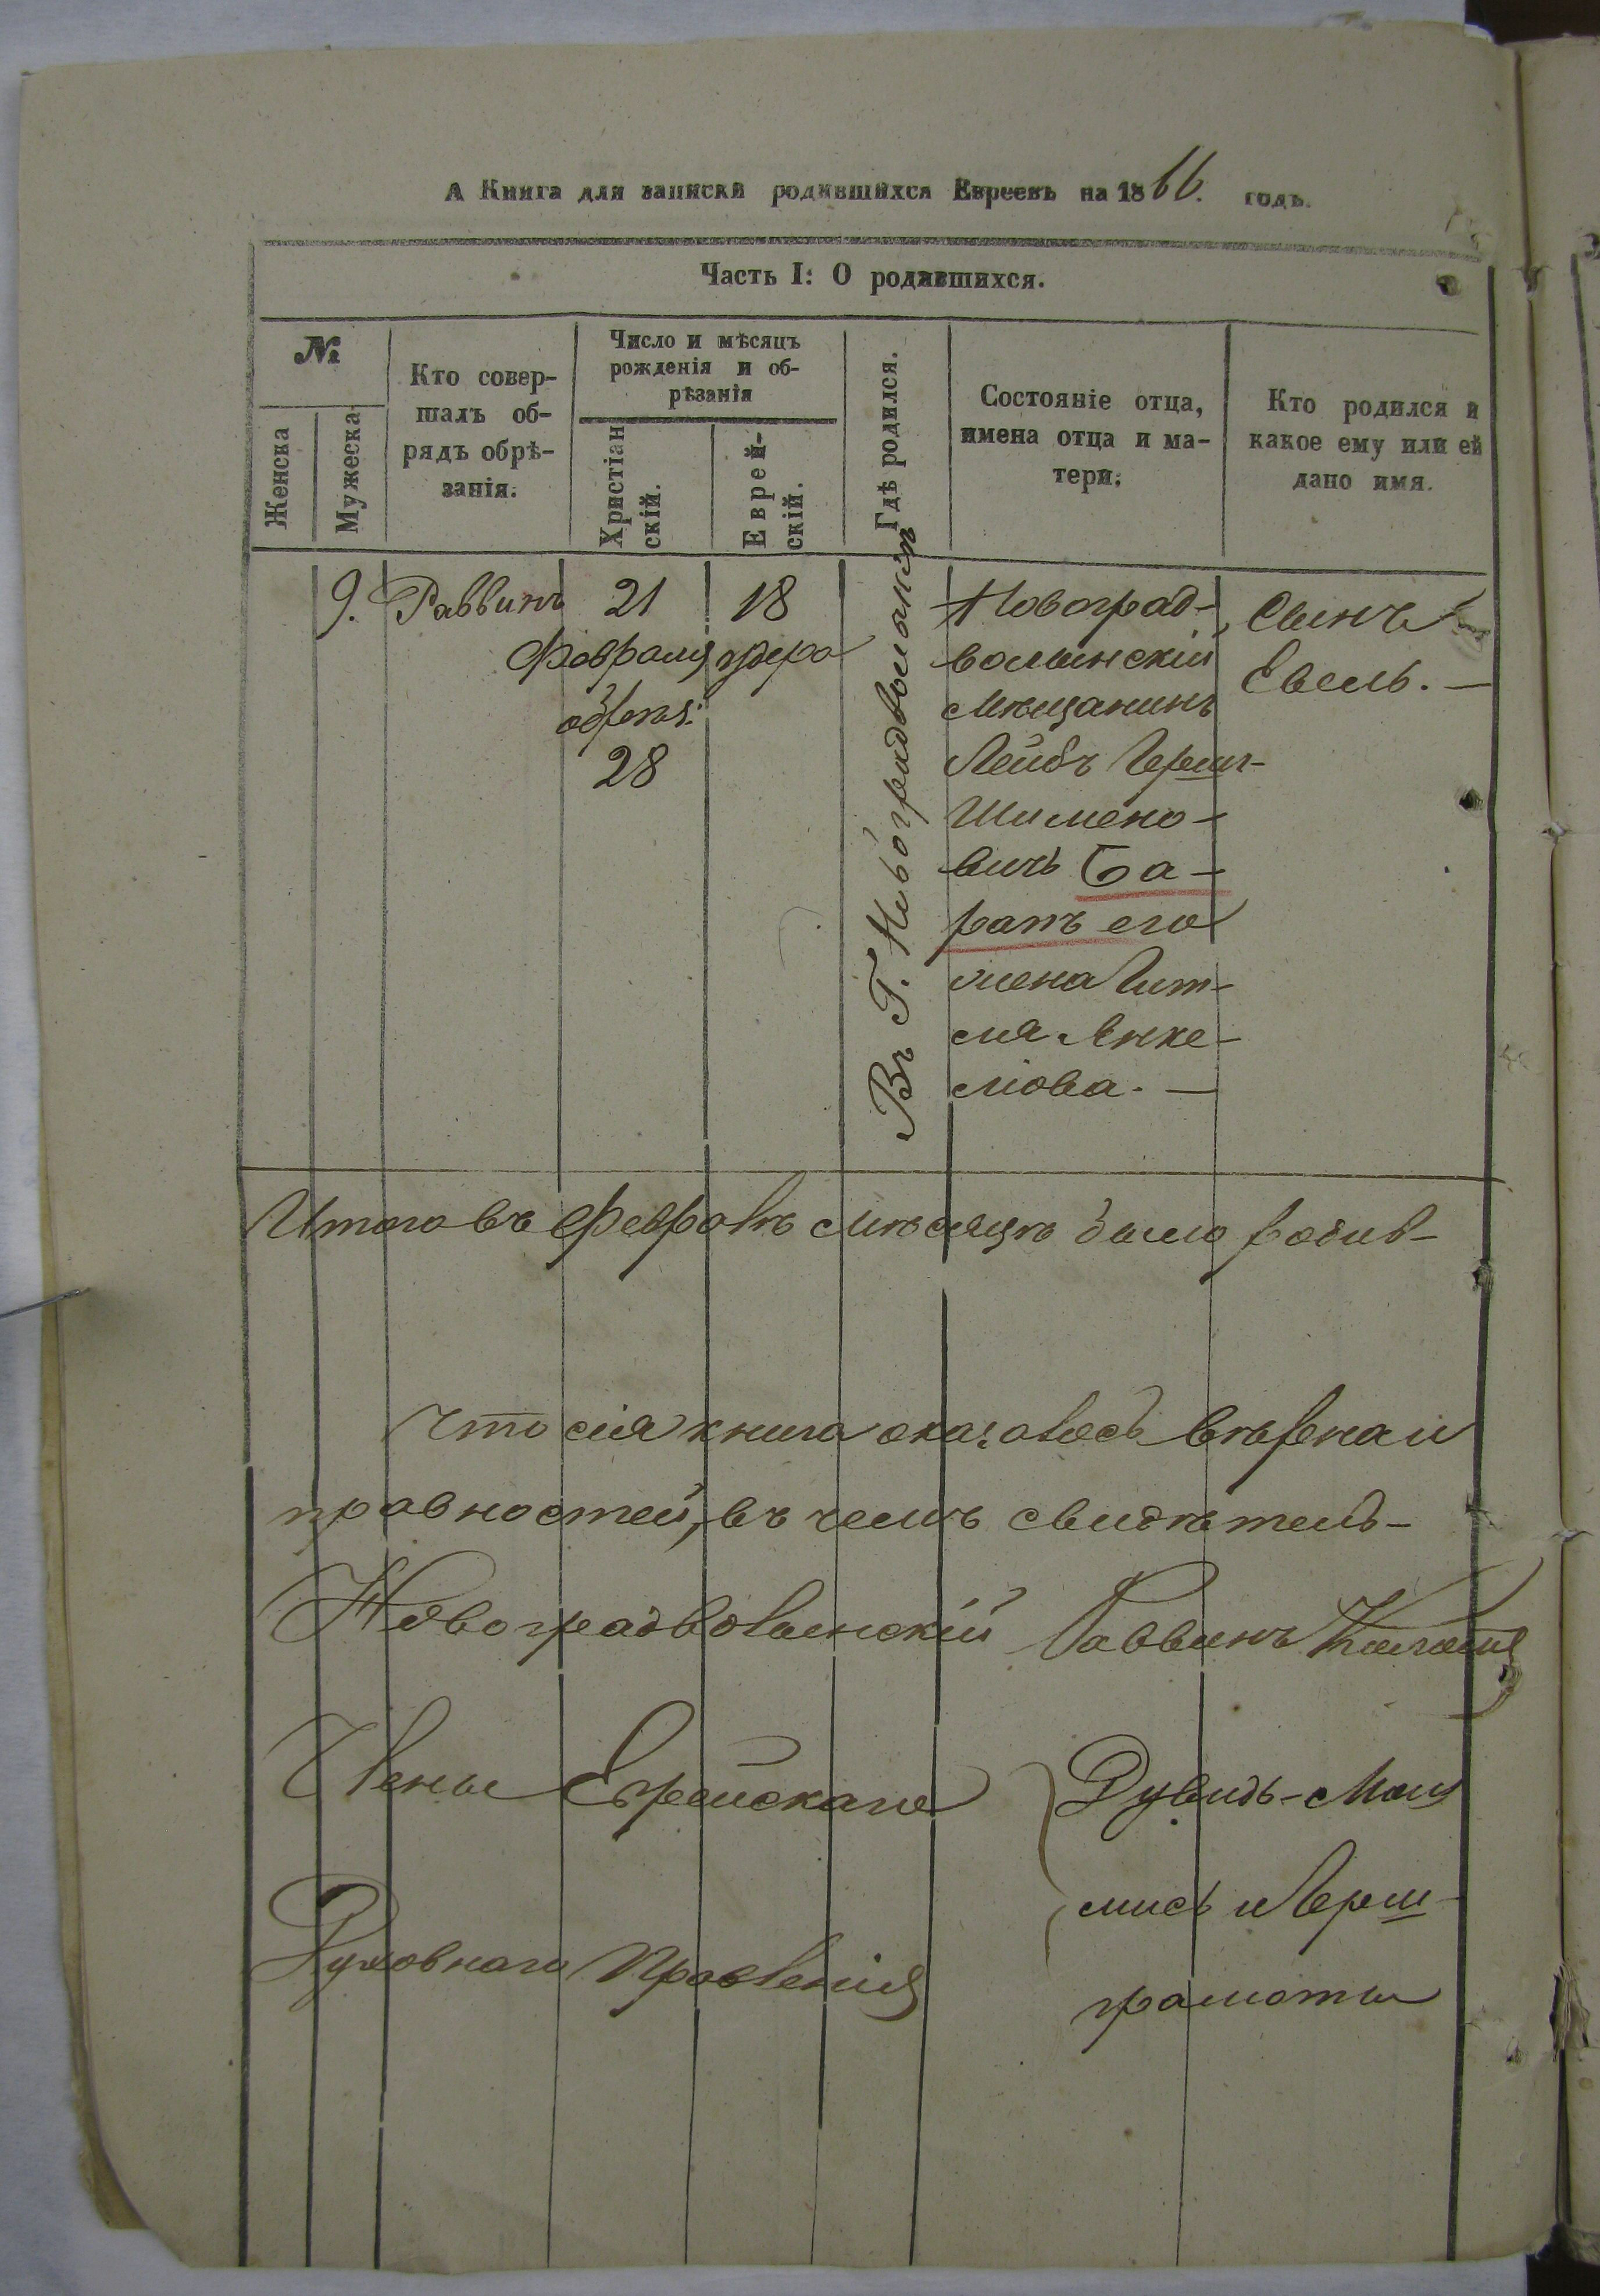 А Книга для записки родившихся Евреевъ на 1866. годъ.
Часть I: О родившихся.
№
Женска
Мужеска
Кто совер-
шалъ об-
рядъ обрѣ-
занія.
Число и мѣсяцъ
рожденія и об-
рѣзанія
Христіан
скій.
Еврей-
скій.
Гдѣ родился.
Состояніе отца,
имена отца и ма-
тери.
Кто родился и
какое ему или ей
дано имя.
9.
Раввинъ
21
Февраля
обрѣзан:
28
18
Адера
Въ Г. Новоградволынскѣ
Новоград-
волынскій
мѣщанинъ
Лейбъ Герш-
Шимено-
вичъ Ба-
ратъ его
жена Гит-
ля Янке-
лiова. —
Сынъ
Евель. —
Итого въ Февралѣ мѣсяцѣ было родив-
Что сія книга оказалось вѣрна и
правностей, въ чемъ свидѣтель-
Новоградволынскій Раввинъ
Члены Еврейскаго
Духовнаго Правленія
Дувидъ-
и Герш-
грамоты